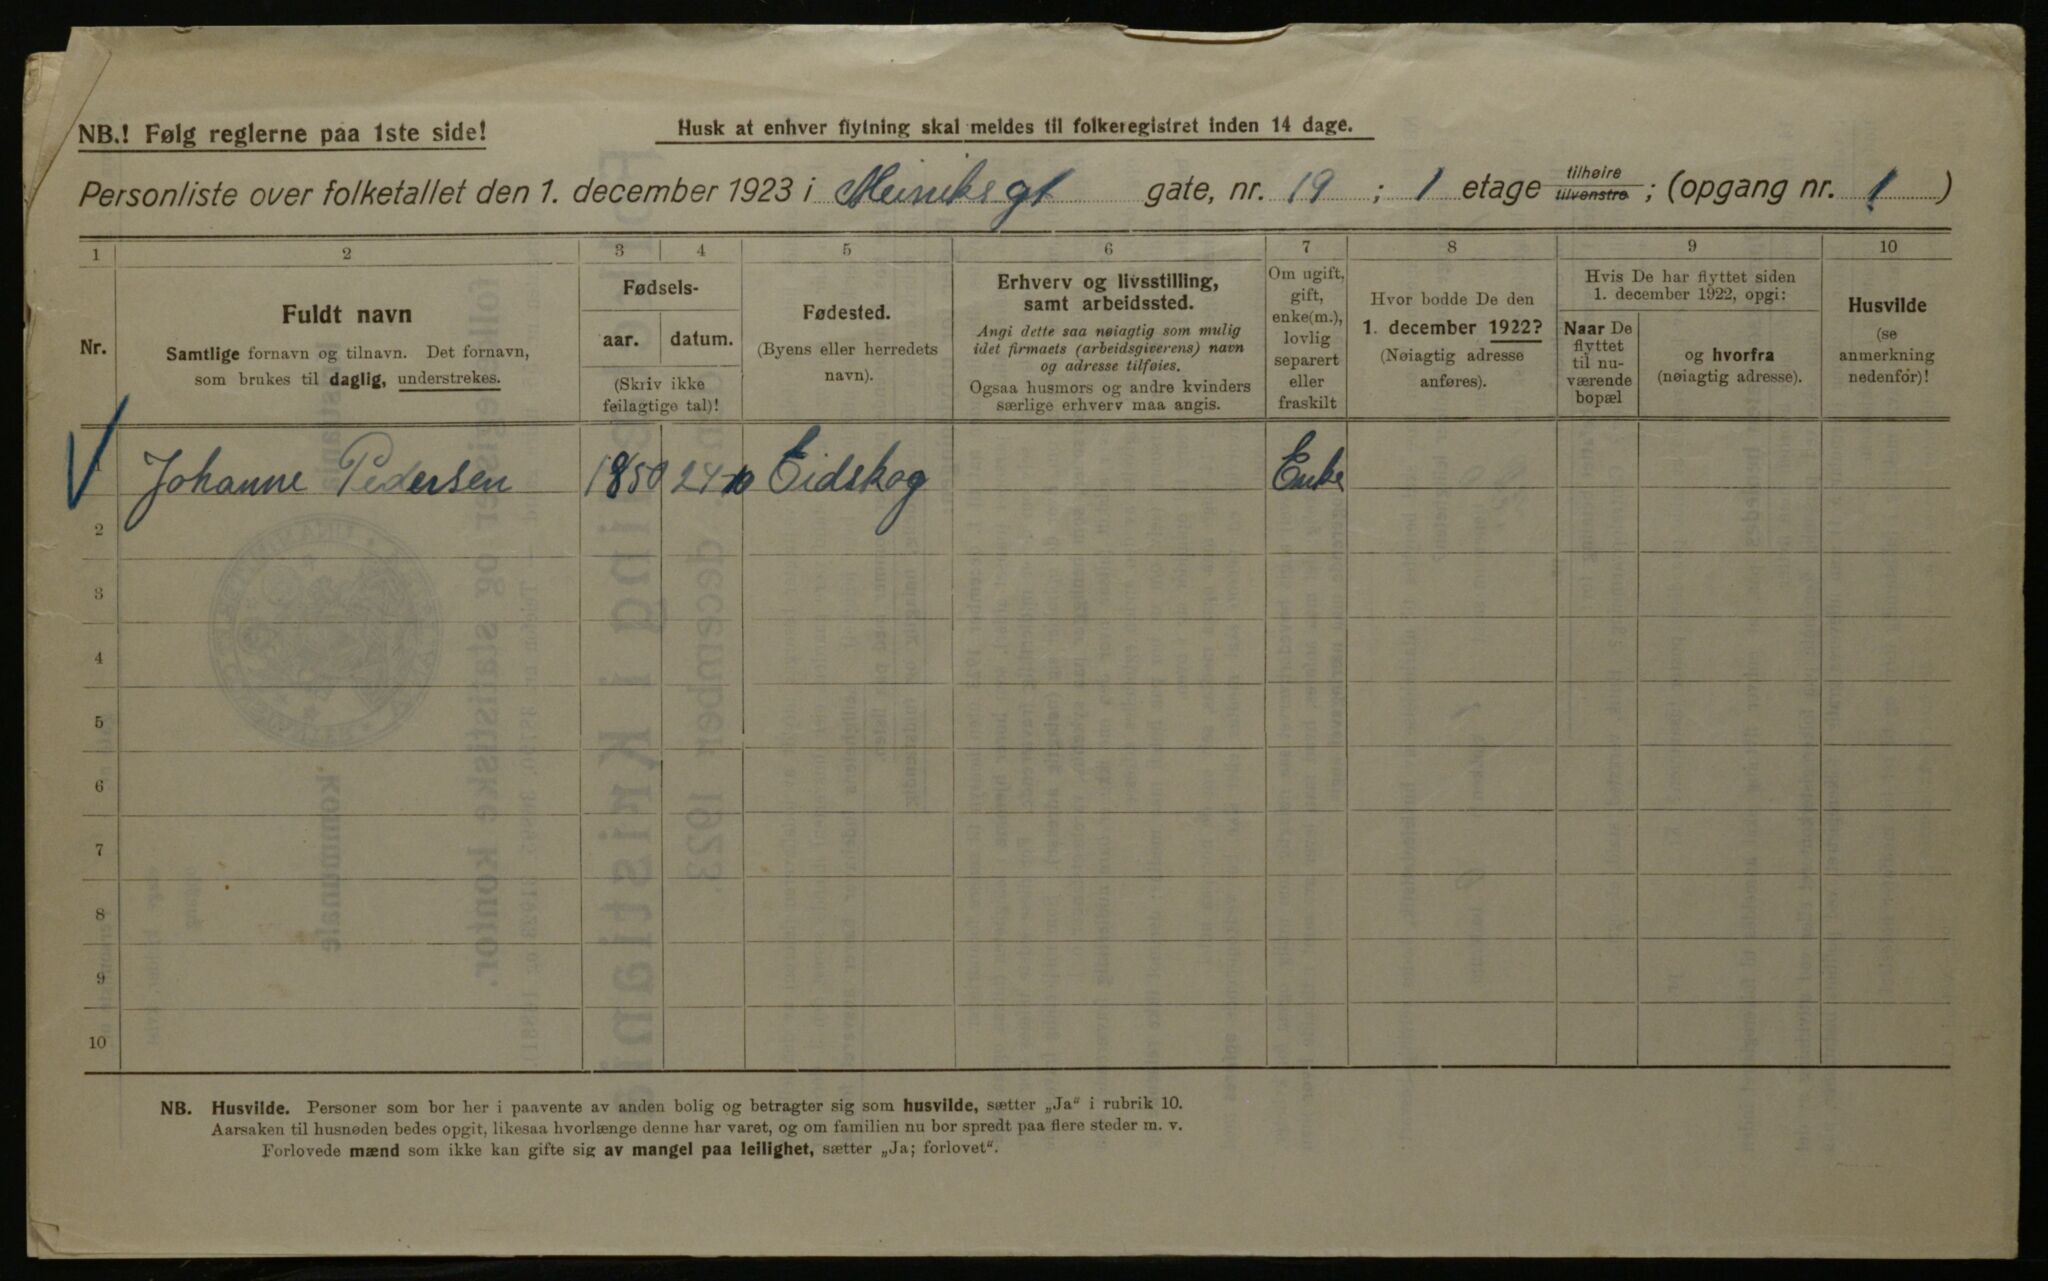 NB.! Følg reglerne paa 1ste side!
Husk at enhver flytning skal meldes til folkeregistret inden 14 dage.
Personliste over folketallet den 1. december 1923 i Meiniks gt gate, nr. 19 ; 1 etage tilhøire tilvenstre ; (opgang nr. 1 )
1 2 3 4 5 6 7 8 9 10
Nr.
Fuldt navn
Samtlige fornavn og tilnavn. Det fornavn,
som brukes til daglig, understrekes.
Fødsels-
aar. datum.
(Skriv ikke
feilagtige tal)!
Fødested.
(Byens eller herredets
navn).
Erhverv og livsstilling,
samt arbeidssted.
Angi dette saa nøiagtig som mulig
idet firmaets (arbeidsgiverens) navn
og adresse tilføies.
Ogsaa husmors og andre kvinders
særlige erhverv maa angis.
Om ugift,
gift,
enke(m.),
lovlig
separert
eller
fraskilt
Hvor bodde De den
1. december 1922?
(Nøiagtig adresse
anføres).
Hvis De har flyttet siden
1. december 1922, opgi:
Naar De
flyttet
til nu-
værende
bopæl
og hvorfra
(nøiagtig adresse).
Husvilde
(se
anmerkning
nedenfor)!
1 Johanne Pedersen 1850 24 10 Eidskog Enke
2
3
4
5
6
7
8
9
10
NB. Husvilde. Personer som bor her i paavente av anden bolig og betragter sig som husvilde, sætter „Ja" i rubrik 10.
Aarsaken til husnøden bedes opgit, likesaa hvorlænge denne har varet, og om familien nu bor spredt paa flere steder m. v.
Forlovede mænd som ikke kan gifte sig av mangel paa leilighet, sætter „Ja; forlovet".